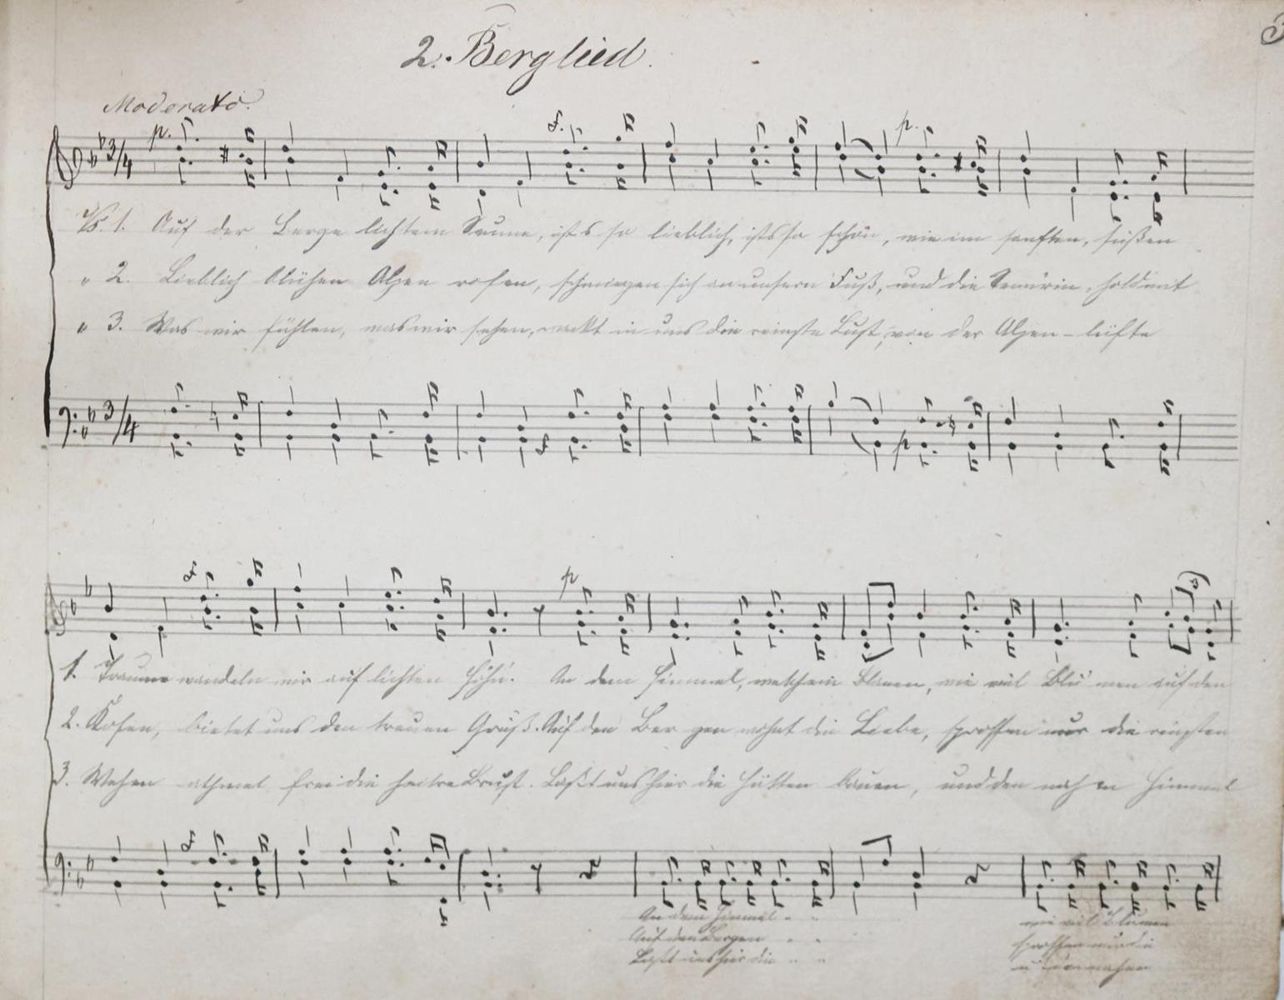 2. Berglied.
Moderato.
p. f. p.
3/4
Vs. 1. Auf der Berge lichtem Saume, ist's so lieblich, ist's so schön, wie im sanften, süßen
" 2. Lieblich blühen Alpen rosen, schmiegen sich an unsern Fuß, und die hold mit
" 3. Was wir fühlen, was wir sehen, weckt in uns die reinste Lust, von der Alpen-lüfte
3/4
f p
f p
1. Traume wandeln wir auf lichten Höh'n. An dem Himmel, welch ein Blauen, wie viel Blu men auf den
2. Kosen, bietet uns den treuen Gruß. Auf den Ber gen wohnt die Liebe, sprossen nur die
3. Wehen athmet frei die heitre Brust. Laßt uns hier die Hütten bauen, und den nah en Himmel
f
An dem Himmel " "
Auf den Bergen " "
Laßt uns hier die " "
wie viel Blumen
sprossen nur die
u. den nahen